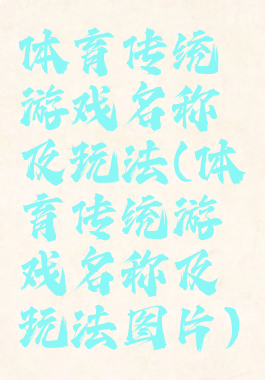 体育传统
游戏名称
及玩法(体
育传统游
戏名称及
玩法图片)